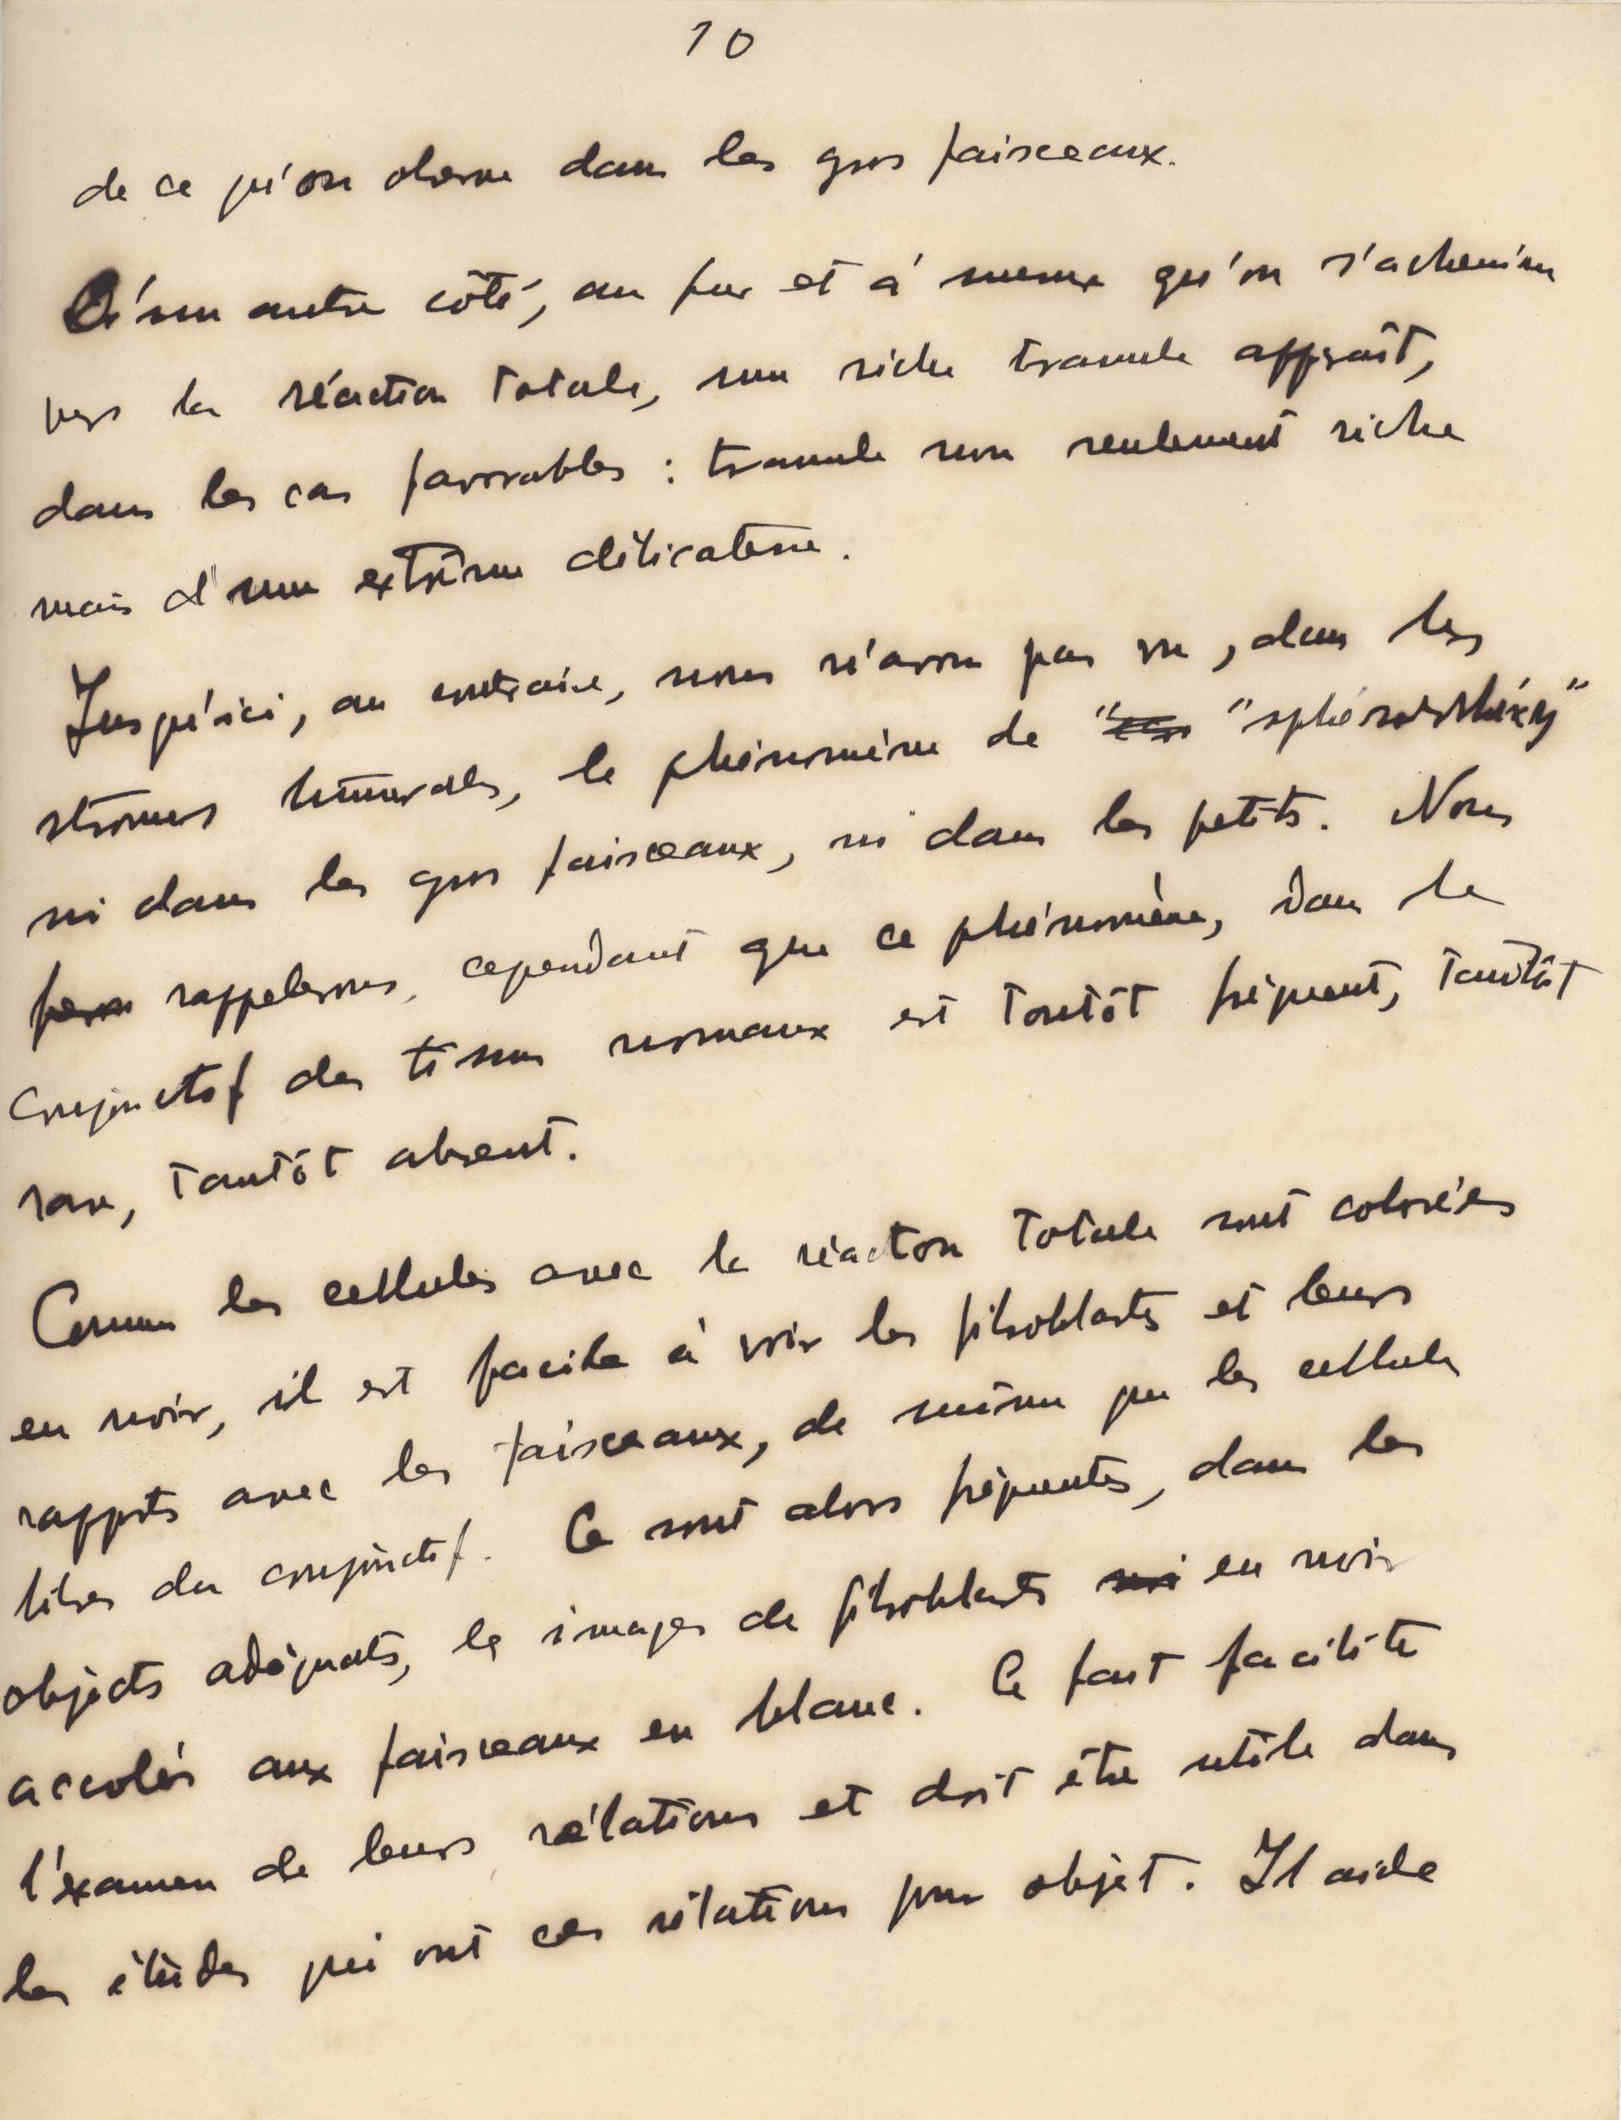 10
de ce qu'on observe dans les gros faisceaux.
D'un autre côté, au fur et à mesure qu'on s'achemine
vers la réaction totale, une riche trame apparaît,
dans les cas favorables : trame non seulement riche
mais d'une extrême délicatesse.
Jusqu'ici, au contraire, nous n'avons pas vu, dans les
stromes tumorales, le phénomène de "sphérorrhéxy"
ni dans les gros faisceaux, ni dans les petits. Nous
rappelerons, cependant que ce phénomène, dans le
conjonctif des tissus normaux est tantôt fréquent, tantôt
rare, tantôt absent.
Comme les cellules avec la réaction totale sont colorées
en noir, il est facile à voir les fibroblasts et leurs
rapports avec les faisceaux, de même que les cellules
libres du conjonctif. Ce sont alors fréquentes, dans les
objects adéquats, les images de fibroblasts en noir
accolés aux faisceaux en blanc. Ce fait facilite
l'examen de leurs rélations et doit être utile dans
les études qui ont ces rélations pour objet. Il aide